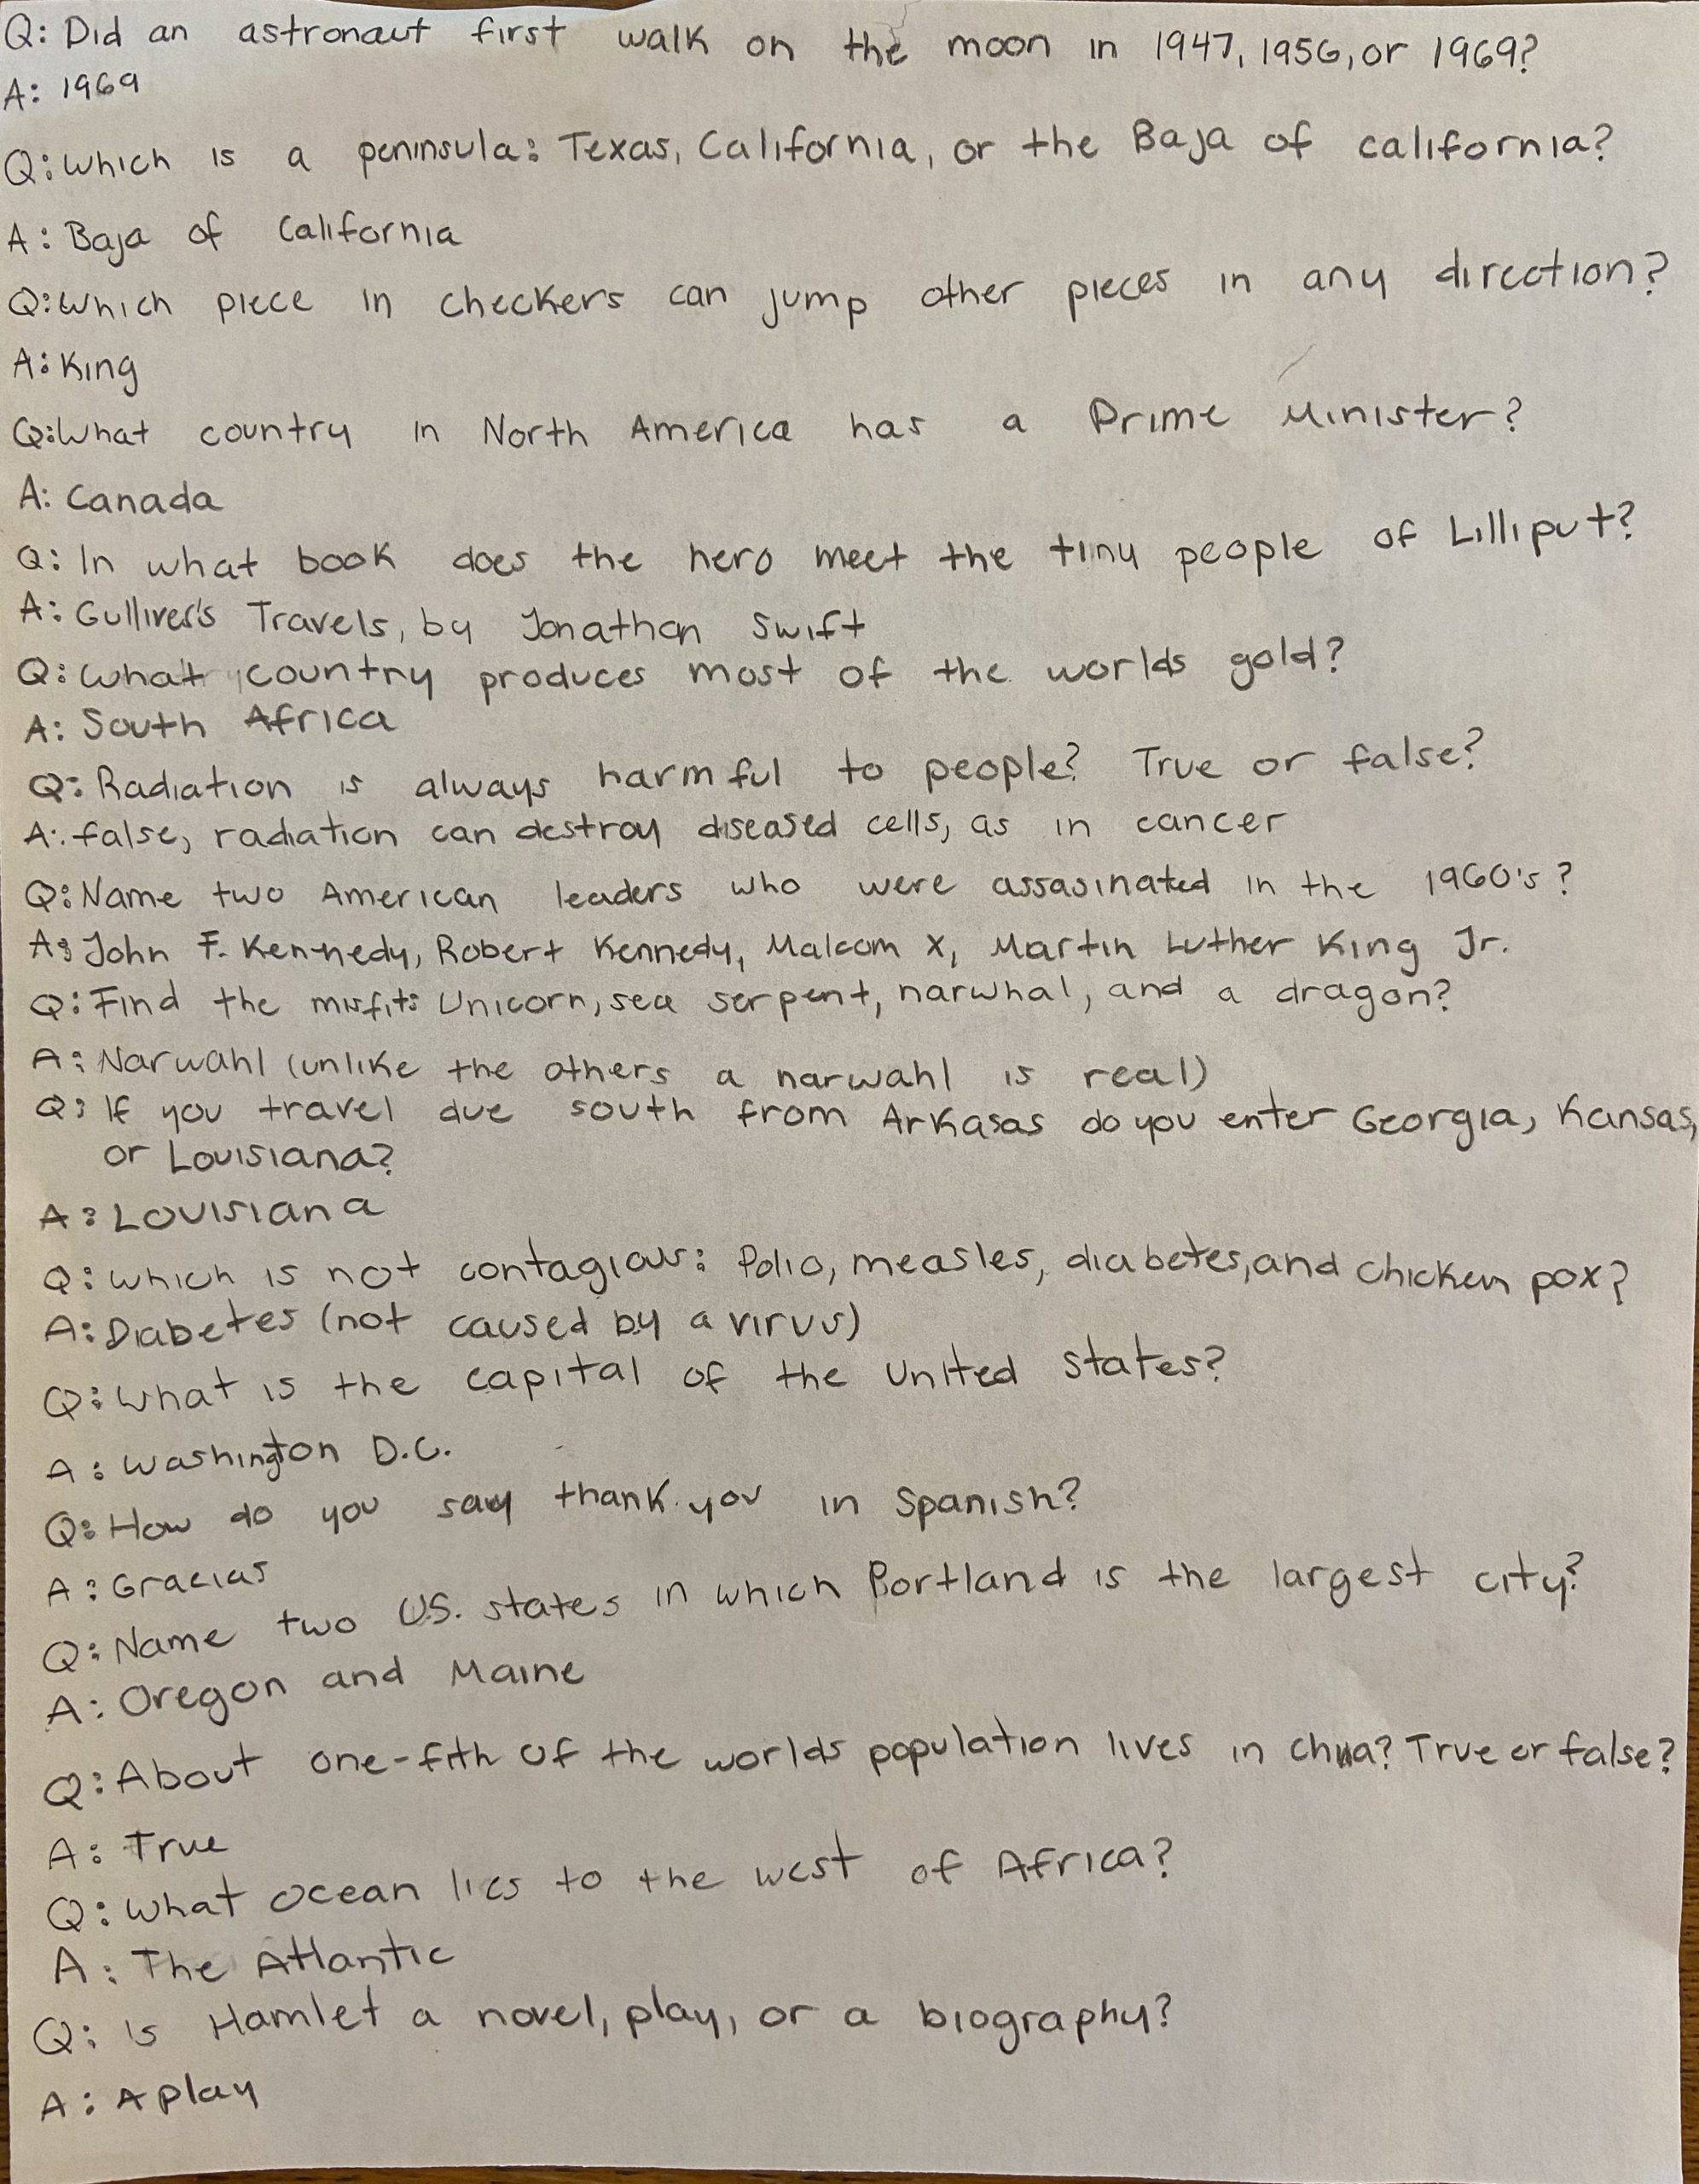 Q: Did an astronaut first walk on the moon in 1947, 1956, or 1969?
A: 1969
Q: Which is a peninsula: Texas, California, or the Baja of california?
A: Baja of California
Q: Which piece in checkers can jump other pieces in any direction?
A: King
Q: What country in North America has a Prime Minister?
A: Canada
Q: In what book does the hero meet the tiny people of Lilliput?
A: Gulliver's Travels, by Jonathan Swift
Q: What country produces most of the worlds gold?
A: South Africa
Q: Radiation is always harmful to people? True or false?
A: false, radiation can destroy diseased cells, as in cancer
Q: Name two American leaders who were assasinated in the 1960's?
A: John F. Kennedy, Robert Kennedy, Malcom X, Martin Luther King Jr.
Q: Find the misfit: Unicorn, sea serpent, narwhal, and a dragon?
A: Narwahl (unlike the others a narwahl is real)
Q: If you travel due south from Arkasas do you enter Georgia, Kansas,
or Louisiana?
A: Louisiana
Q: Which is not contagious: Polio, measles, diabetes, and chicken pox?
A: Diabetes (not caused by a virus)
Q: What is the capital of the United States?
A: Washington D.C.
Q: How do you say thank you in Spanish?
A: Gracias
Q: Name two U.S. states in which Portland is the largest city?
A: Oregon and Maine
Q: About one-fith of the worlds population lives in China? True or false?
A: True
Q: What ocean lies to the west of Africa?
A: The Atlantic
Q: is Hamlet a novel, play, or a biography?
A: A play